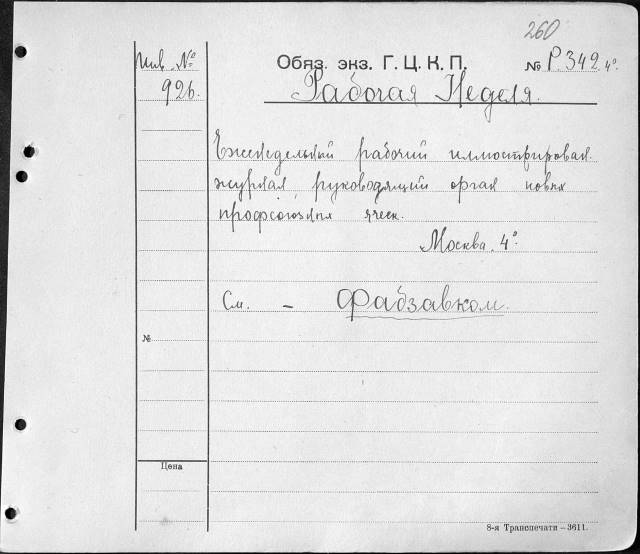 260
Инв. №
926.
Обяз. экз. Г. Ц. К. П. № Р.342.4°.
Рабочая Неделя.
Еженедельный рабочий иллюстрирован.
журнал, руководящий орган новых
профсоюзных ячеек.
Москва. 4°.
См. – Фабзавком.
№
Цена
8-я Транспечати – 3611.